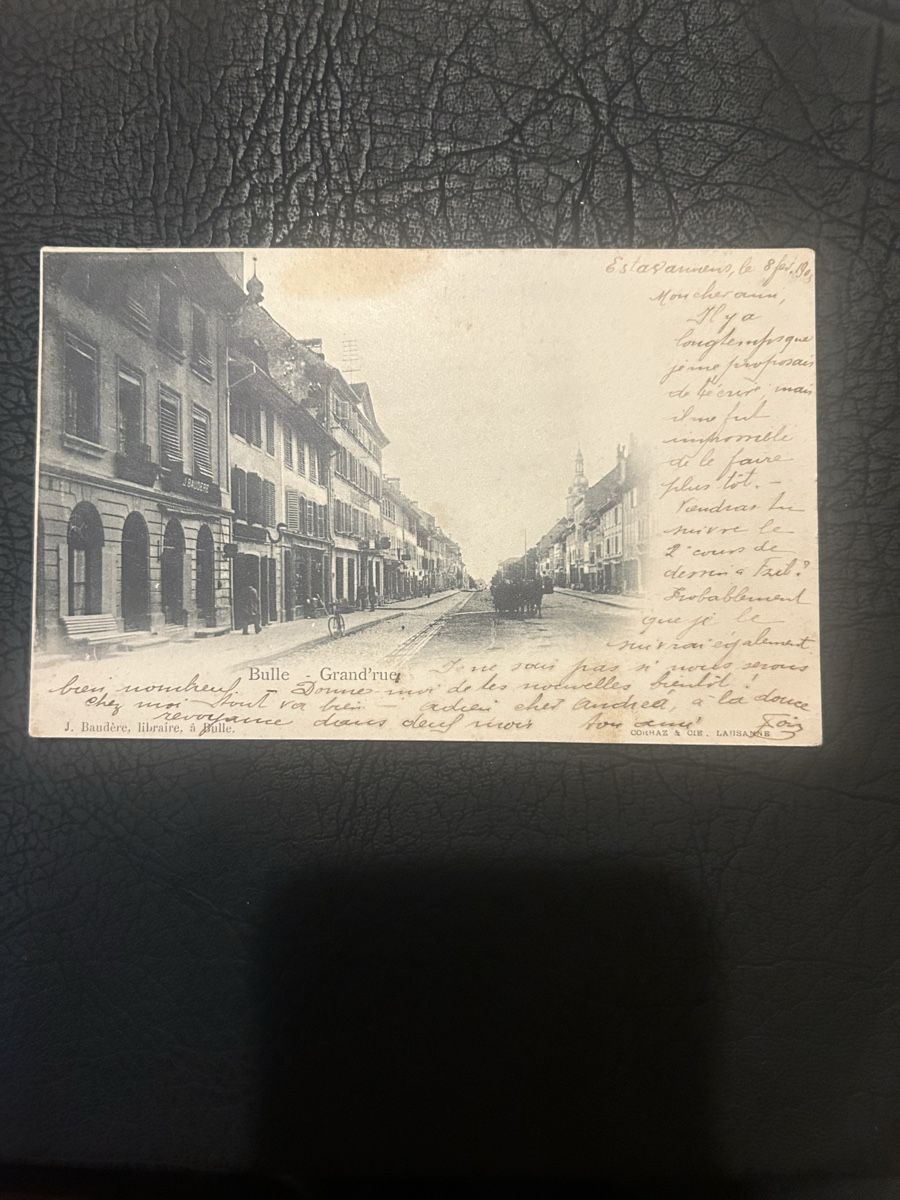 Estavannens, le 8 fév.
Mon cher ami,
Il y a
longtemps que
je me proposais
de t'écrire, mais
il me fut
impossible
de le faire
plus tôt. –
Viendras tu
suivre le
2e cours de
dessin à
Probablement
que je le
suivrai également
J. BAUDÈRE
Bulle - Grand'rue
Je ne sais pas si nous serons
bien nombreux. Donne moi de tes nouvelles bientôt!
chez moi tout va bien – adieu cher Andrea, à la douce
revoyance dans deux mois ton ami
J. Baudère, libraire, à Bulle.
CORBAZ & CIE, LAUSANNE